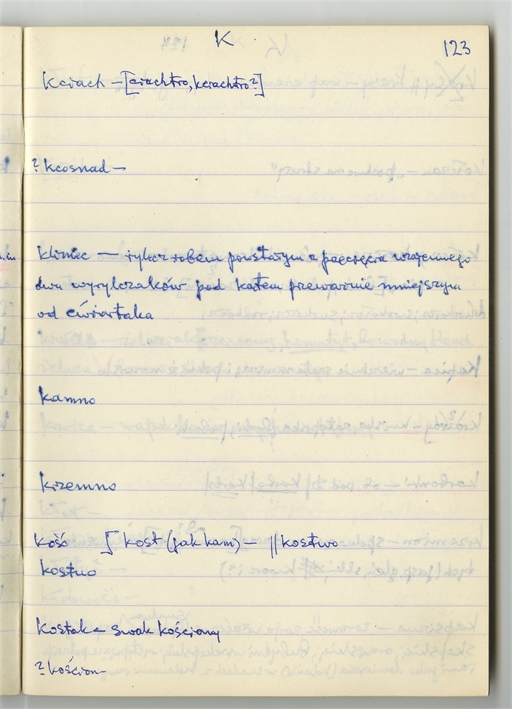 K
123
Kciach – [ciachtro, kciachtro?]
? kcosnad –
kliniec — rylec z robem powstałym z przecięcia wzajemnego
dwu wyrylczaków pod kątem przeważnie mniejszym
od ćwiartaka
kamno
krzemno
kość [kost (jak kam) – || kostwo
kostno
kostak – swak kościony
? kościon –